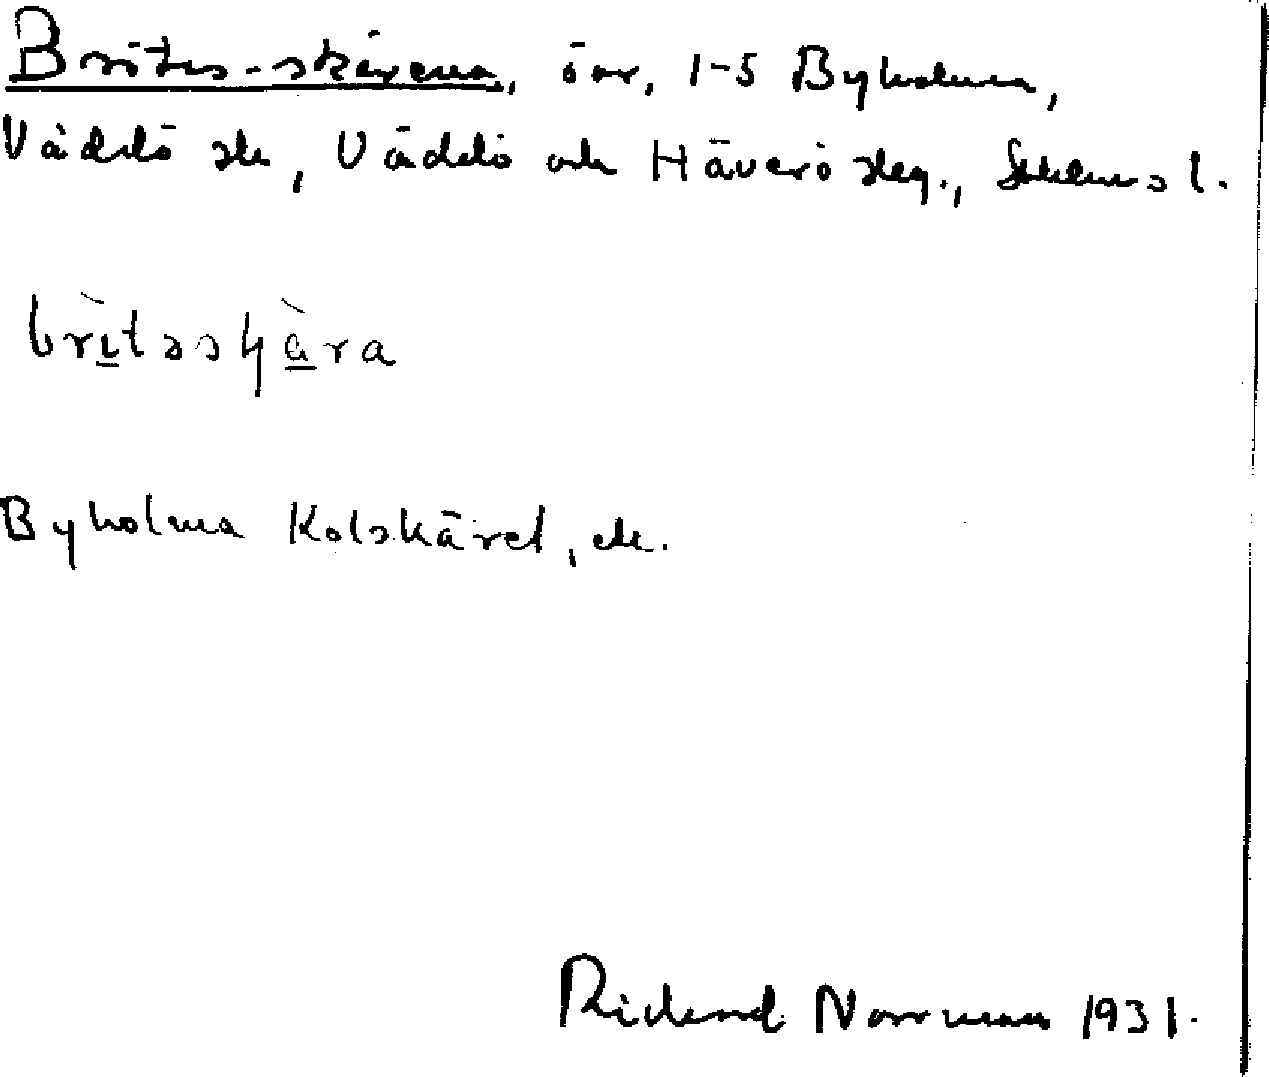 Bröts-skären, öar, 1-5 Byholma,
Väddö sn, Väddö och Häverö skg., Sthlms l.
brɩ̀tsskàra
Byholma Kolskäret, etc.
Rickard Norrman 1931.